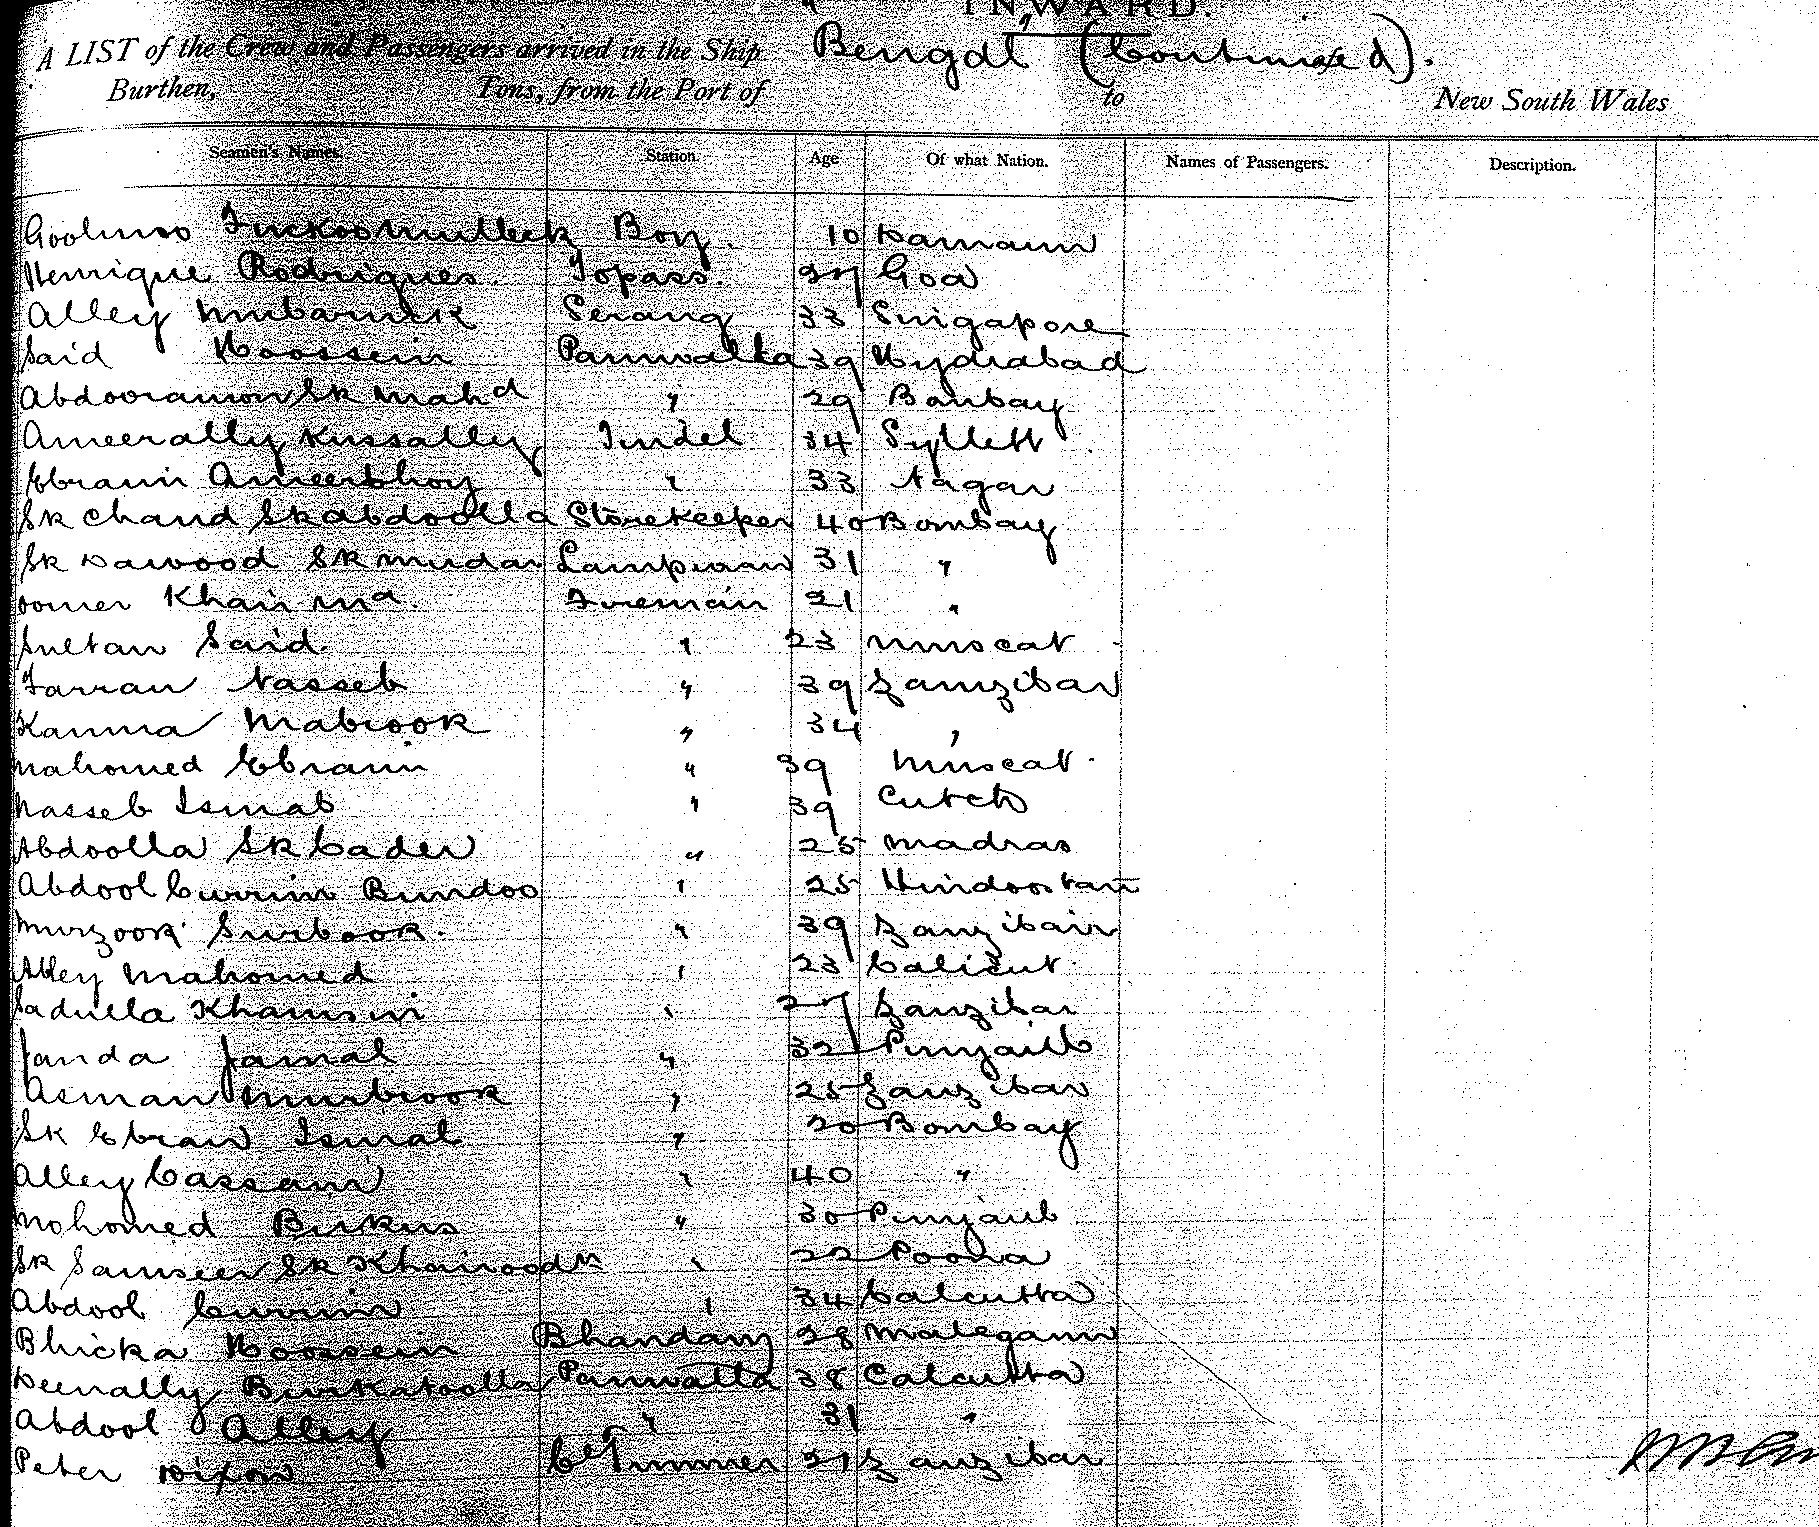 INWARD.
A LIST of the Crew and Passengers arrived in the Ship Bengal (Continued).
Burthen, Tons, from the Port of to New South Wales
Seamen's Names. Station. Age Of what Nation. Names of Passengers. Description.
Goolmoo Boy. 10 Damaun
Henrique Rodrigues. Topass. 27 Goa
Alley Mubarruk Serang 33 Singapore
Said Hoossein Pannwalla 39 Hydrabad
Abdooramon Sk Mahd " 29 Bombay
Ameerally Kussalley Tindel 34 Syllett
Ebraim Ameerbhoy " 33 Nagar
Sk Chand Sk Abdoolla Storekeeper 40 Bombay
Sk Dawood Sk Mudar Lampman 31 "
Oomer Khan Md. Fireman 21 "
Sultan Said. " 23 Muscat
Farran Nasseb " 39 Zanzibar
Kanma Mabrook " 34 "
Mahomed Ebraim " 39 Muscat.
Nasseb Ismab " 39 Cutch
Abdoolla Sk Cader " 25 Madras
Abdool Currim Bundoo " 25 Hindoostan
Murzook Surbook. " 39 Zanzibar
Alley Mahomed " 23 Calicut.
Sadulla Khamsin " 27 Zanzibar
Janda Jamal " 32 Punjaub
Asman Murbrook " 25 Zanzibar
Sk Ebram Ismal " 20 Bombay
Alley Cassam " 40 "
Mohomed Burkus " 30 Punjaub
Sk Samseer Sk Khairoodn " 22 Poona
Abdool Currim " 34 Calcutta
Bhicka Hoossein Bhandary 28 Malegaum
Deenally Burkatoolla Pannwalla 38 Calcutta
Abdool Alley " 31 "
Peter Dixon Cl Trimmer 21 Zanzibar